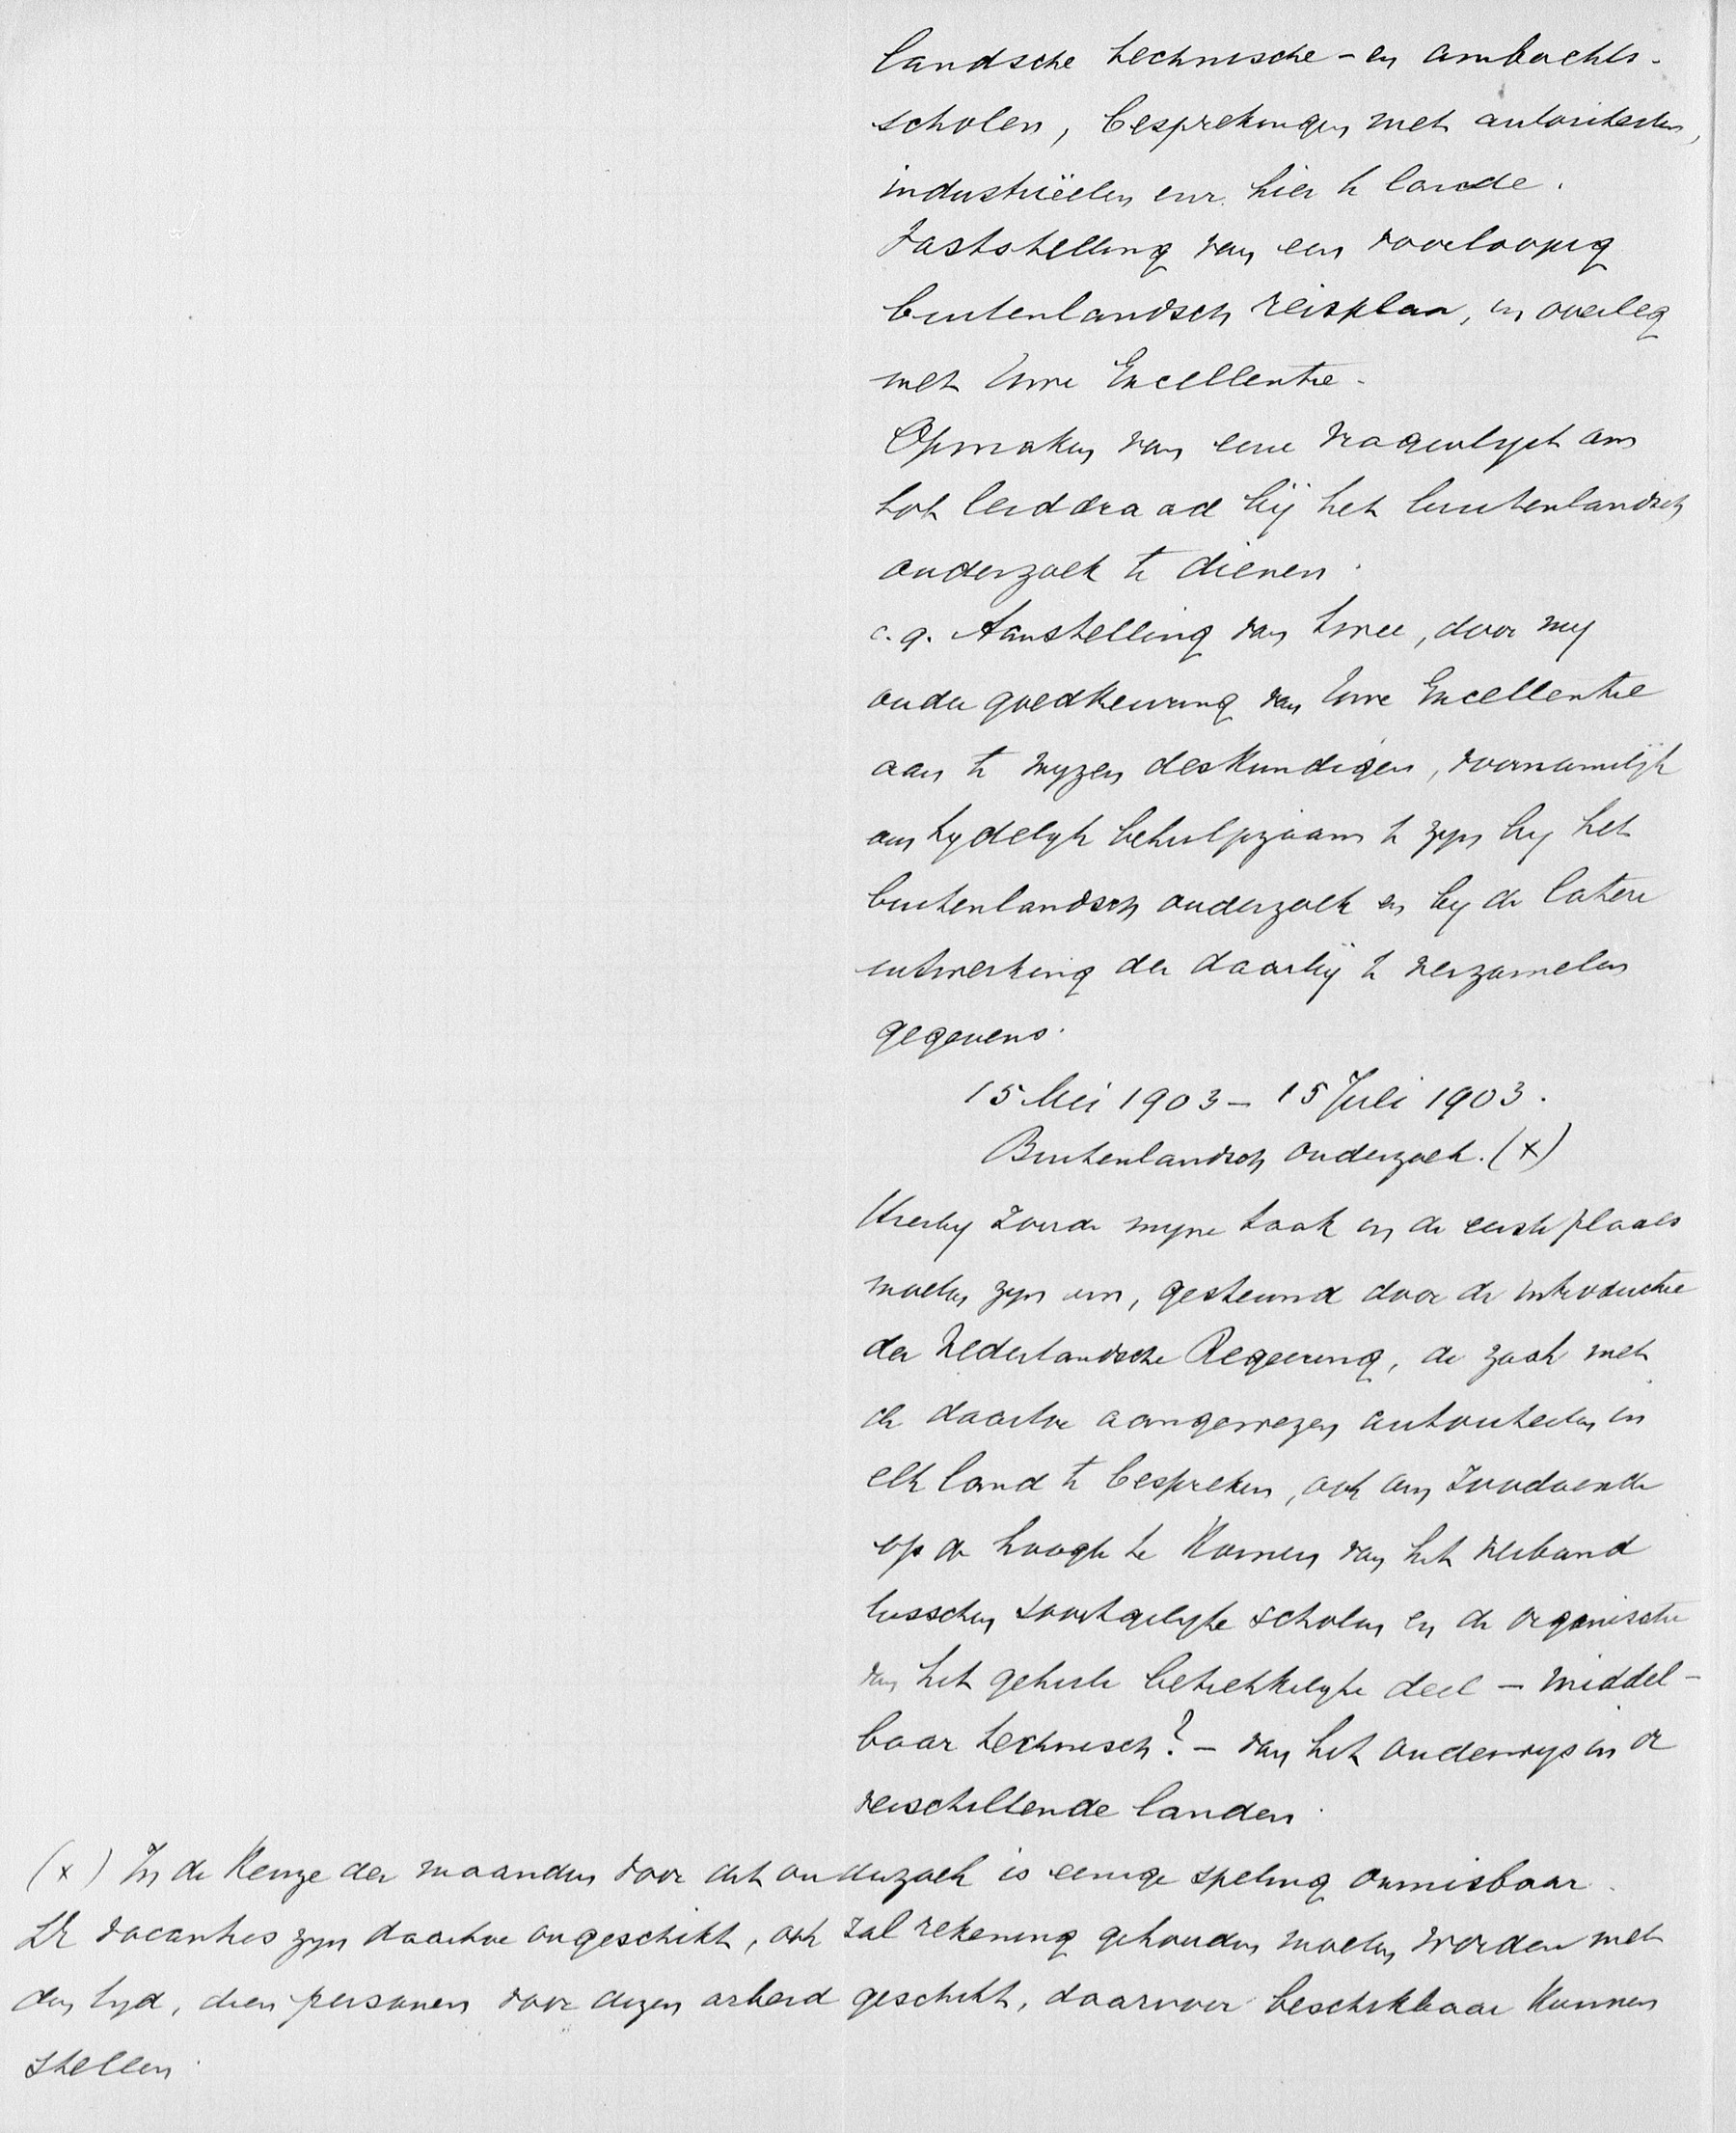 landsche technische- en ambachts-
scholen, besprekingen met autoriteiten,
industrieëlen enz. hier te lande.
Vaststelling van een voorloopig
buitenlandsch reisplan, in overleg
met Uwe Excellentie.
Opmaken van eene vragenlijst om
tot leiddraad bij het buitenlandsch
onderzoek te dienen.
c.q. Aanstelling van twee, door mij
onder goedkeuring van Uwe Excellentie
aan te wijzen deskundigen, voornamelijk
om tijdelijk behulpzaam te zijn bij het
buitenlandsch onderzoek en bij de latere
uitwerking der daarbij te verzamelen
gegevens.
15 Mei 1903 – 15 Juli 1903.
Buitenlandsch onderzoek. (x)
Hierbij zoude mijne taak in de eerste plaats
moeten zijn om, gesteund door de introductie
der Nederlandsche Regeering, de zaak met
de daartoe aangewezen autoriteiten in
elk land te bespreken, ook om zoodoende
op de hoogte te komen van het verband
tusschen soortgelijke scholen en de organisatie
van het geheele betrekkelijke deel – middel-
baar technisch? – van het onderwijs in de
verschillende landen.
(x) In de keuze der maanden voor dit onderzoek is eenige speling onmisbaar.
De vacanties zijn daartoe ongeschikt, ook zal rekening gehouden moeten worden met
den tijd, dien personen voor dezen arbeid geschikt, daarvoor beschikbaar kunnen
stellen.